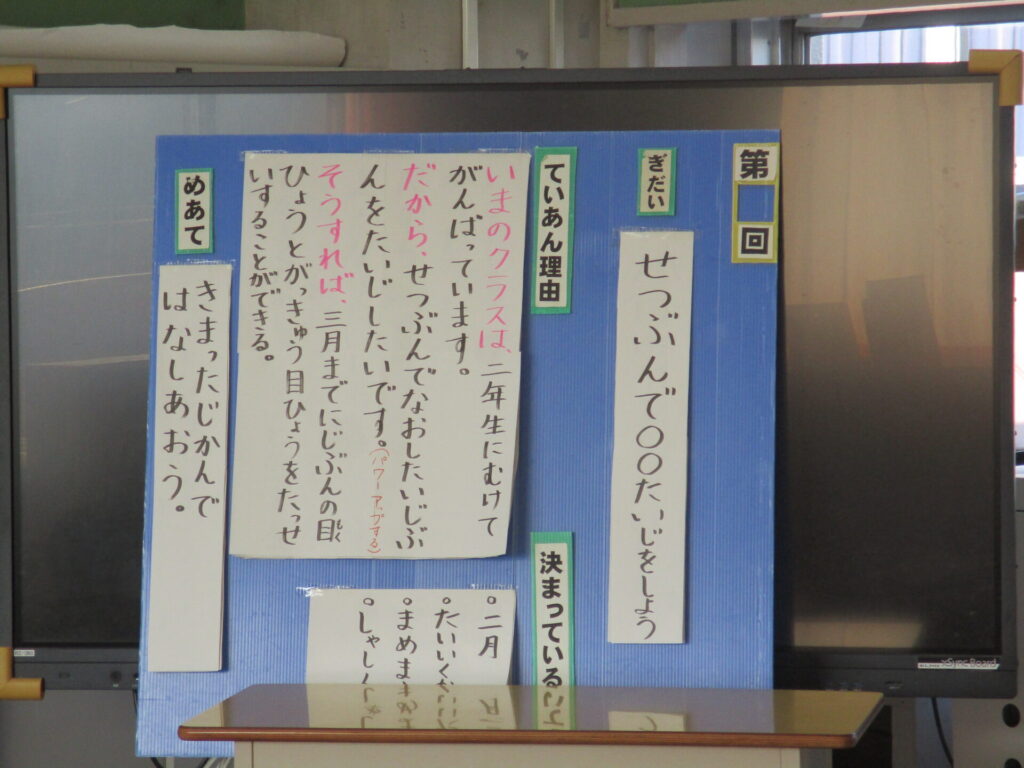 第 回
ぎだい
せつぶんで○○たいじをしよう
ていあん理由
いまのクラスは、二年生にむけて
がんばっています。
だから、せつぶんでなおしたいじぶ
んをたいじしたいです。(パワーアップする)
そうすれば、三月までにじぶんの目
ひょうとがっきゅう目ひょうをたっせ
いすることができる。
決まっている
。二月
。たいいく
。まめま
。しゃし
めあて
きまったじかんで
はなしあおう。